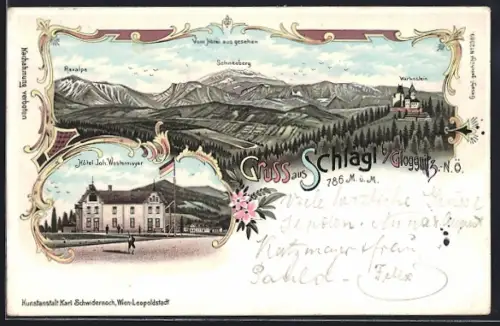 Vom Hôtel aus gesehen
Raxalpe
Schneeberg
Wartenstein
Nachahmung verboten
Hôtel Joh. Westermayer
Gruss aus Schlagl b/ Gloggnitz-N.Ö.
786 M. ü. M.
Viele herzliche Grüsse
senden
Paula - Felix
Kunstanstalt Karl Schwidernoch, Wien-Leopoldstadt